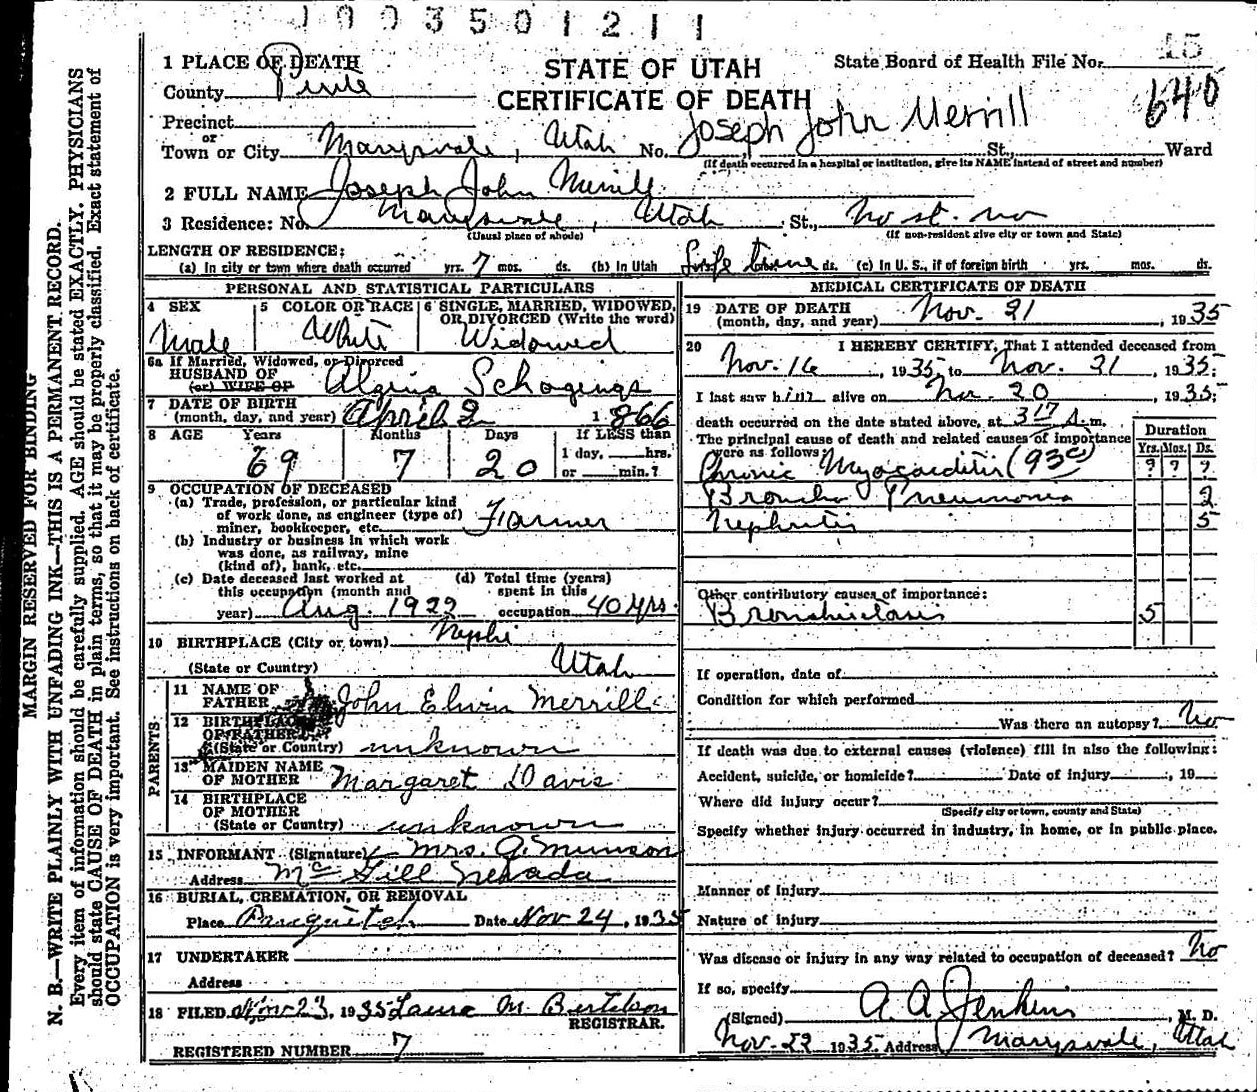 1003501211
15
640
1 PLACE OF DEATH
STATE OF UTAH
State Board of Health File No.
County Piute
CERTIFICATE OF DEATH
Joseph John Merrill
Precinct
or
Town or City Marysvale, Utah No. St., Ward
(If death occurred in a hospital or institution, give its NAME instead of street and number)
2 FULL NAME Joseph John Merrill
3 Residence: No. Marysvale, Utah St., No st. no
(Usual place of abode) (If non-resident give city or town and State)
LENGTH OF RESIDENCE:
(a) In city or town where death occurred yrs. 7 mos. ds. (b) In Utah Life time ds. (c) In U. S., if of foreign birth yrs. mos. ds.
PERSONAL AND STATISTICAL PARTICULARS
4 SEX 5 COLOR OR RACE 6 SINGLE, MARRIED, WIDOWED, OR DIVORCED (Write the word)
Male White Widowed
6a If Married, Widowed, or Divorced
HUSBAND OF
(or) WIFE OF
7 DATE OF BIRTH
(month, day, and year) April 2 1866
8 AGE Years Months Days If LESS than
1 day, hrs.
or min.?
69 7 20
9 OCCUPATION OF DECEASED
(a) Trade, profession, or particular kind
of work done, as engineer (type of)
miner, bookkeeper, etc. Farmer
(b) Industry or business in which work
was done, as railway, mine
(kind of), bank, etc.
(c) Date deceased last worked at
this occupation (month and
year) Aug. 1922
(d) Total time (years)
spent in this
occupation 40 yrs.
10 BIRTHPLACE (City or town) Nephi
(State or Country) Utah
PARENTS
11 NAME OF
FATHER John Elvin Merrill
12 BIRTHPLACE
OF FATHER
(State or Country) unknown
13 MAIDEN NAME
OF MOTHER Margaret Davis
14 BIRTHPLACE
OF MOTHER
(State or Country) unknown
15 INFORMANT (Signature) Mrs. A. Munson
Address McGill Nevada
16 BURIAL, CREMATION, OR REMOVAL
Place Panguitch Date Nov 24, 1935
17 UNDERTAKER
Address
18 FILED Nov 23, 1935 Laura M. Bertelson
REGISTRAR.
REGISTERED NUMBER 7
MEDICAL CERTIFICATE OF DEATH
19 DATE OF DEATH
(month, day, and year) Nov. 21, 1935
20 I HEREBY CERTIFY, That I attended deceased from
Nov. 16, 1935, to Nov. 21, 1935;
I last saw him alive on Nov. 20, 1935;
death occurred on the date stated above, at 3 17 A.m.
The principal cause of death and related causes of importance
were as follows:
Duration
Yrs. Mos. Ds.
Chronic Myocarditis (93c) ? ? ?
Broncho Pneumonia 2
Nephritis 5
Other contributory causes of importance:
Bronchiectasis 5
If operation, date of
Condition for which performed
Was there an autopsy? No
If death was due to external causes (violence) fill in also the following:
Accident, suicide, or homicide? Date of injury , 19
Where did injury occur?
(Specify city or town, county and State)
Specify whether injury occurred in industry, in home, or in public place.
Manner of Injury
Nature of injury
Was disease or injury in any way related to occupation of deceased? No
If so, specify
(Signed) A. A. Jenkins, M. D.
Nov. 22 1935 Address Marysvale, Utah
MARGIN RESERVED FOR BINDING
N. B.—WRITE PLAINLY WITH UNFADING INK—THIS IS A PERMANENT RECORD.
Every item of information should be carefully supplied. AGE should be stated EXACTLY. PHYSICIANS
should state CAUSE OF DEATH in plain terms, so that it may be properly classified. Exact statement of
OCCUPATION is very important. See instructions on back of certificate.